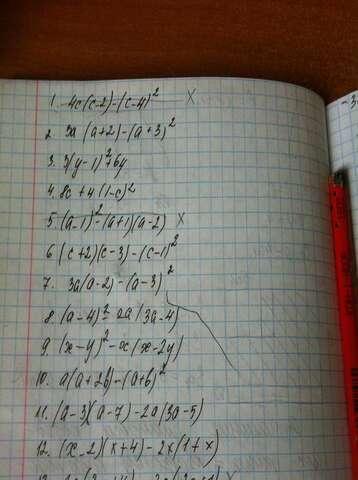 1. 4c(c-2)-(c-4)² X
2. 3a (a+2)-(a+3)²
3. 3(y-1)²+6y
4. 8c+4(1-c)²
5 (a-1)²-(a+1)(a-2) X
6 (c+2)(c-3)-(c-1)²
7. 3a(a-2)-(a-3)²
8. (a-4)²-2a(3a-4)
9. (x-y)²-x(x-2y)
10. a(a+2b)-(a+b)²
11. (a-3)(a-7)-2a(3a-5)
12. (x-2)(x+4)-2x(1+x)